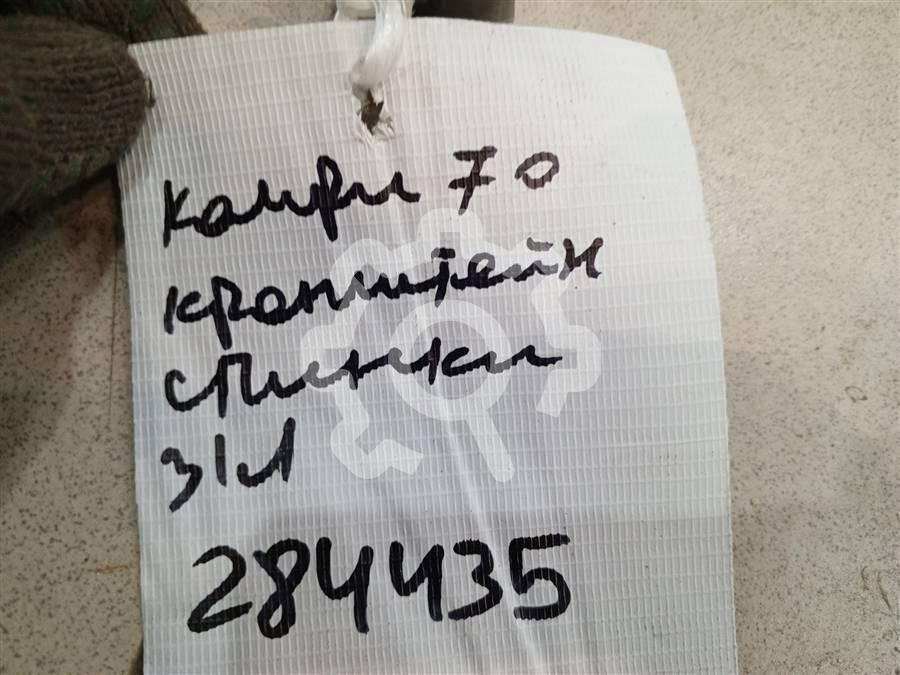 Камри 70
кронштейн
спинки
з/л
284435